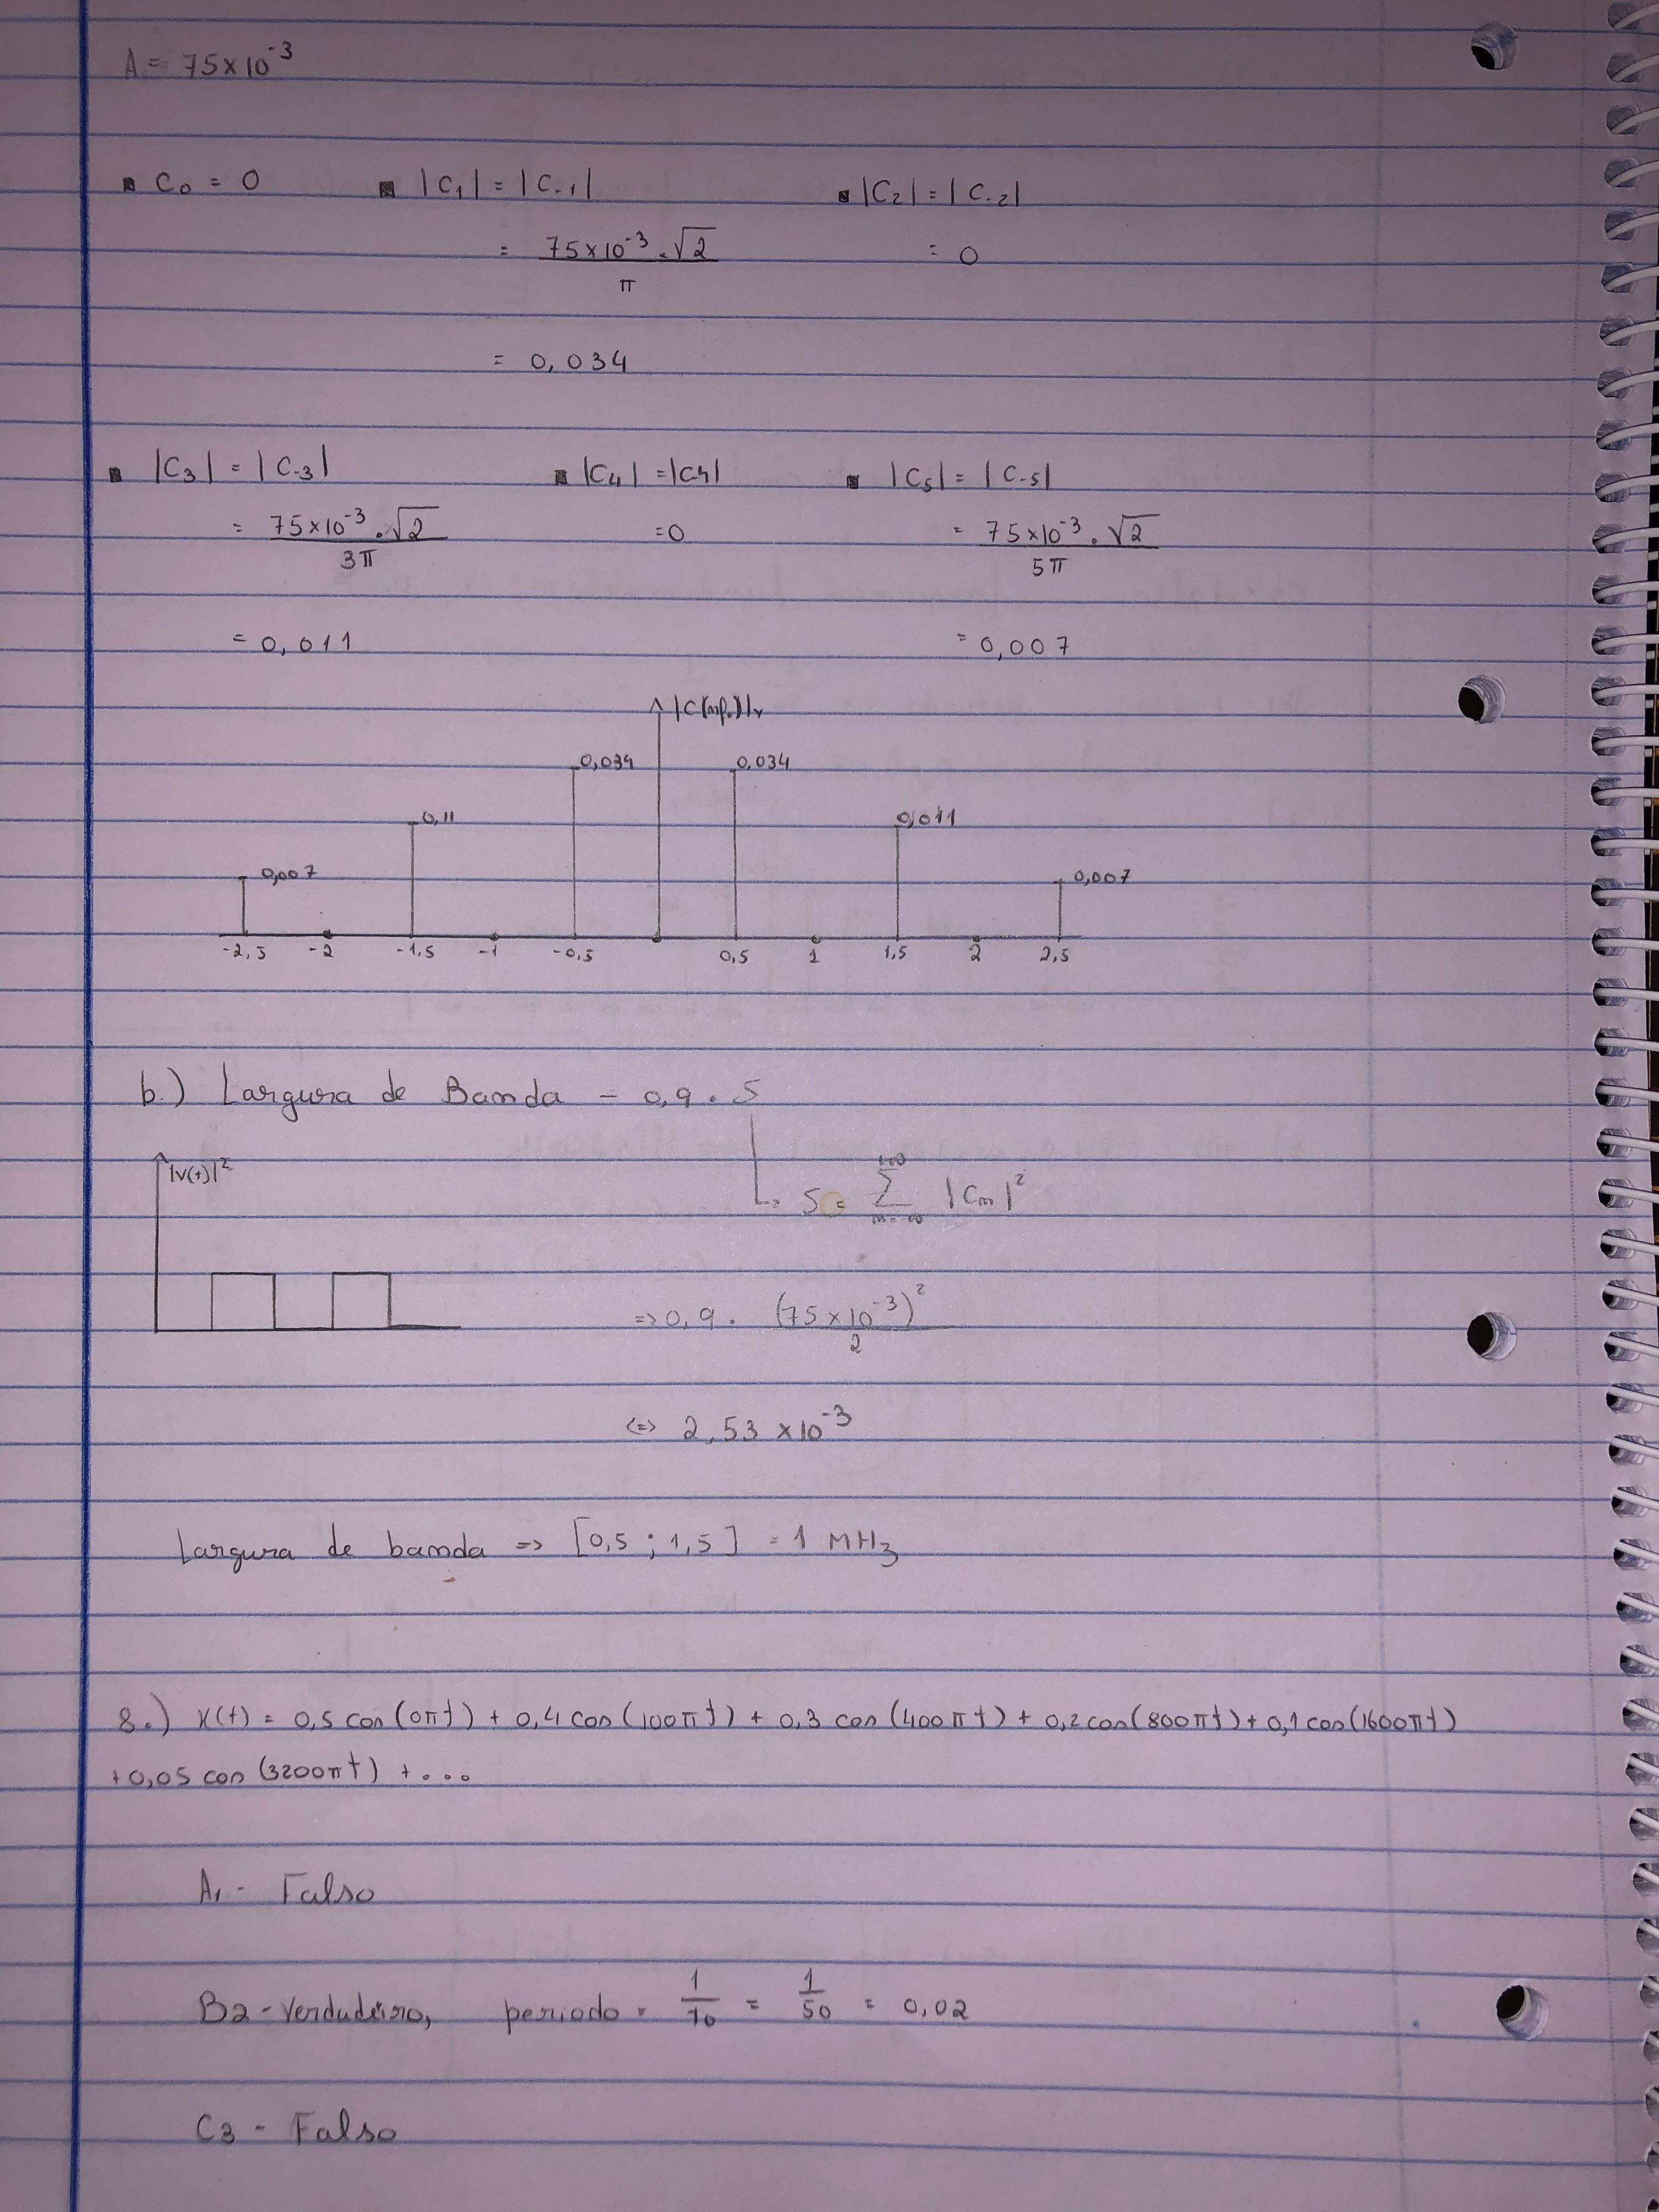 A = 75×10⁻³
▪ C₀ = 0 ▪ |C₁| = |C₋₁| ▪ |C₂| = |C₋₂|
= 75×10⁻³ . √2 / π = 0
= 0,034
▪ |C₃| = |C₋₃| ▪ |C₄| = |C₄| ▪ |C₅| = |C₋₅|
= 75×10⁻³ . √2 / 3π = 0 = 75×10⁻³ . √2 / 5π
= 0,011 = 0,007
|C(mf₀)|ᵥ
0,034 0,034
0,11 0,011
0,007 0,007
-2,5 -2 -1,5 -1 -0,5 0,5 1 1,5 2 2,5
b.) Largura de Banda - 0,9 . S
|v(t)|²
↳ S = +∞ Σ m=-∞ |Cm|²
=> 0,9 . (75×10⁻³)² / 2
<=> 2,53 ×10⁻³
Largura de banda => [0,5 ; 1,5] = 1 MHz
8.) X(t) = 0,5 cos(0πt) + 0,4 cos(100πt) + 0,3 cos(400πt) + 0,2 cos(800πt) + 0,1 cos(1600πt)
+0,05 cos(3200πt) + ...
A1 - Falso
B2 - Verdadeiro, periodo = 1/f₀ = 1/50 = 0,02
C3 - Falso